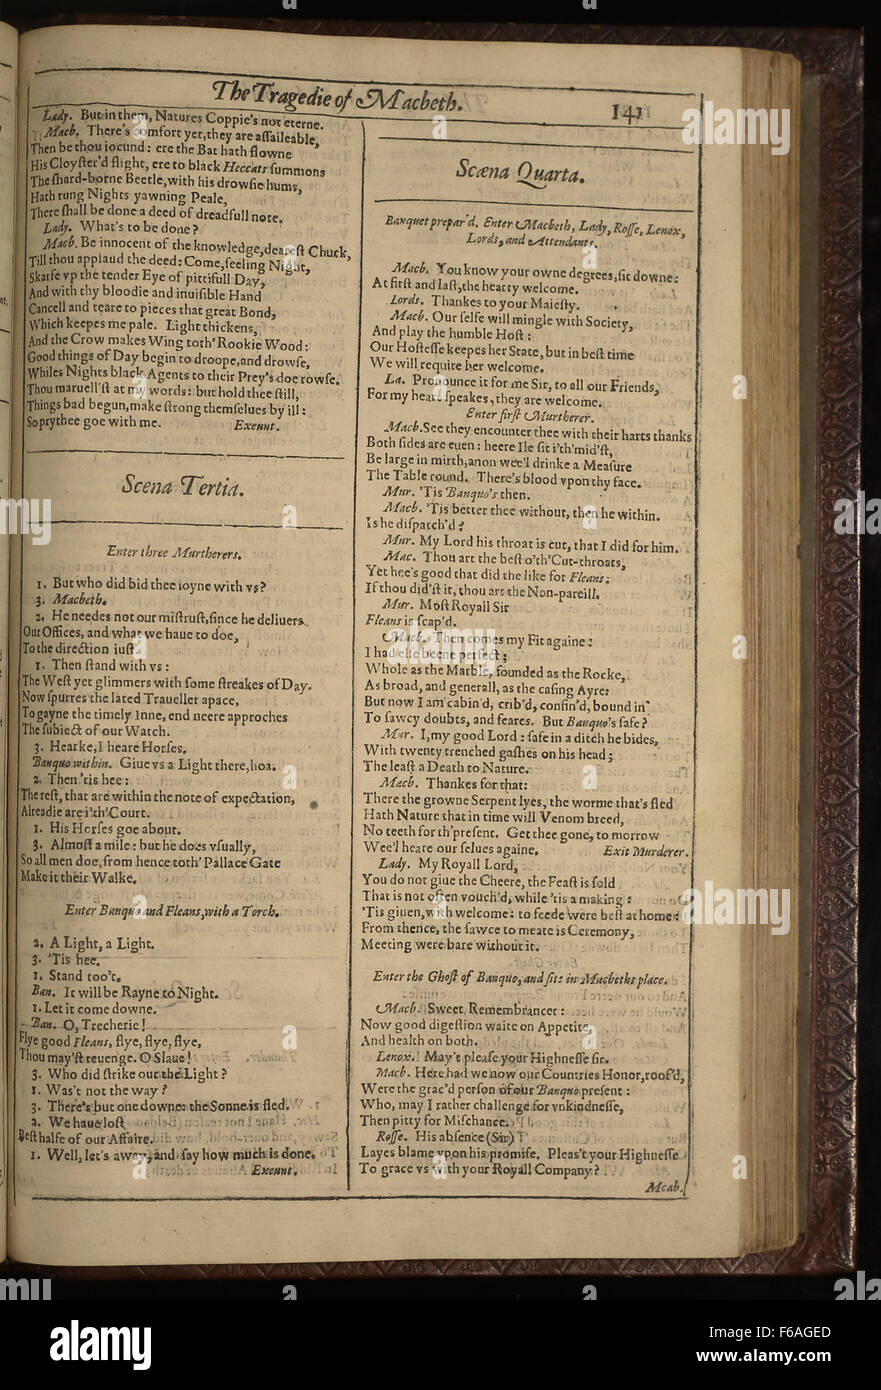 The Tragedie of Macbeth. 141
Lady. But in them, Natures Coppie's not eterne.
Macb. There's comfort yet, they are aſſaileable,
Then be thou iocund: ere the Bat hath flowne
His Cloyſter'd flight, ere to black Heccats ſummons
The ſhard-borne Beetle, with his drowſie hums,
Hath rung Nights yawning Peale,
There ſhall be done a deed of dreadfull note.
Lady. What's to be done?
Macb. Be innocent of the knowledge, deareſt Chuck,
Till thou applaud the deed: Come, ſeeling Night,
Skarfe vp the tender Eye of pittifull Day,
And with thy bloodie and inuiſible Hand
Cancell and teare to pieces that great Bond,
Which keepes me pale. Light thickens,
And the Crow makes Wing toth' Rookie Wood:
Good things of Day begin to droope, and drowſe,
Whiles Nights black Agents to their Prey's doe rowſe.
Thou maruell'ſt at my words: but hold thee ſtill,
Things bad begun, make ſtrong themſelues by ill:
So prythee goe with me. Exeunt.
Scena Tertia.
Enter three Murtherers.
1. But who did bid thee ioyne with vs?
3. Macbeth.
2. He needes not our miſtruſt, ſince he deliuers
Our Offices, and what we haue to doe,
To the direction iuſt.
1. Then ſtand with vs:
The Weſt yet glimmers with ſome ſtreakes of Day.
Now ſpurres the lated Traueller apace,
To gayne the timely Inne, end neere approches
The ſubiect of our Watch.
3. Hearke, I heare Horſes.
Banquo within. Giue vs a Light there, hoa.
2. Then 'tis hee:
The reſt, that are within the note of expectation,
Alreadie are i'th' Court.
1. His Horſes goe about.
3. Almoſt a mile: but he does vſually,
So all men doe, from hence toth' Pallace Gate
Make it their Walke.
Enter Banquo and Fleans, with a Torch.
2. A Light, a Light.
3. 'Tis hee.
1. Stand too't.
Ban. It will be Rayne to Night.
1. Let it come downe.
Ban. O, Trecherie!
Flye good Fleans, flye, flye, flye,
Thou may'ſt reuenge. O Slaue!
3. Who did ſtrike out the Light?
1. Was't not the way?
3. There's but one downe: the Sonne is fled.
2. We haue loſt
Beſt halfe of our Affaire.
1. Well, let's away, and ſay how much is done.
Exeunt.
Scæna Quarta.
Banquet prepar'd. Enter Macbeth, Lady, Roſſe, Lenox,
Lords, and Attendants.
Macb. You know your owne degrees, ſit downe:
At firſt and laſt, the hearty welcome.
Lords. Thankes to your Maieſty.
Macb. Our ſelfe will mingle with Society,
And play the humble Hoſt:
Our Hoſteſſe keepes her State, but in beſt time
We will require her welcome.
La. Pronounce it for me Sir, to all our Friends,
For my heart ſpeakes, they are welcome.
Enter firſt Murtherer.
Macb. See they encounter thee with their harts thanks
Both ſides are euen: heere Ile ſit i'th' mid'ſt,
Be large in mirth, anon wee'l drinke a Meaſure
The Table round. There's blood vpon thy face.
Mur. 'Tis Banquo's then.
Macb. 'Tis better thee without, then he within.
Is he diſpatch'd?
Mur. My Lord his throat is cut, that I did for him.
Mac. Thou art the beſt o'th' Cut-throats,
Yet hee's good that did the like for Fleans:
If thou did'ſt it, thou art the Non-pareill.
Mur. Moſt Royall Sir
Fleans is ſcap'd.
Macb. Then comes my Fit againe:
I had elſe beene perfect;
Whole as the Marble, founded as the Rocke,
As broad, and generall, as the caſing Ayre:
But now I am cabin'd, crib'd, confin'd, bound in
To ſawcy doubts, and feares. But Banquo's ſafe?
Mur. I, my good Lord: ſafe in a ditch he bides,
With twenty trenched gaſhes on his head;
The leaſt a Death to Nature.
Macb. Thankes for that:
There the growne Serpent lyes, the worme that's fled
Hath Nature that in time will Venom breed,
No teeth for th' preſent. Get thee gone, to morrow
Wee'l heare our ſelues againe. Exit Murderer.
Lady. My Royall Lord,
You do not giue the Cheere, the Feaſt is ſold
That is not often vouch'd, while 'tis a making:
'Tis giuen, with welcome: to feede were beſt at home:
From thence, the ſawce to meate is Ceremony,
Meeting were bare without it.
Enter the Ghoſt of Banquo, and ſits in Macbeths place.
Macb. Sweet Remembrancer:
Now good digeſtion waite on Appetite,
And health on both.
Lenox. May't pleaſe your Highneſſe ſit.
Macb. Here had we now our Countries Honor, roof'd,
Were the grac'd perſon of our Banquo preſent:
Who, may I rather challenge for vnkindneſſe,
Then pitty for Miſchance.
Roſſe. His abſence (Sir)
Layes blame vpon his promiſe. Pleas't your Highneſſe
To grace vs with your Royall Company?
Mcab.
alamy stock photo
F6AGED
www.alamy.com